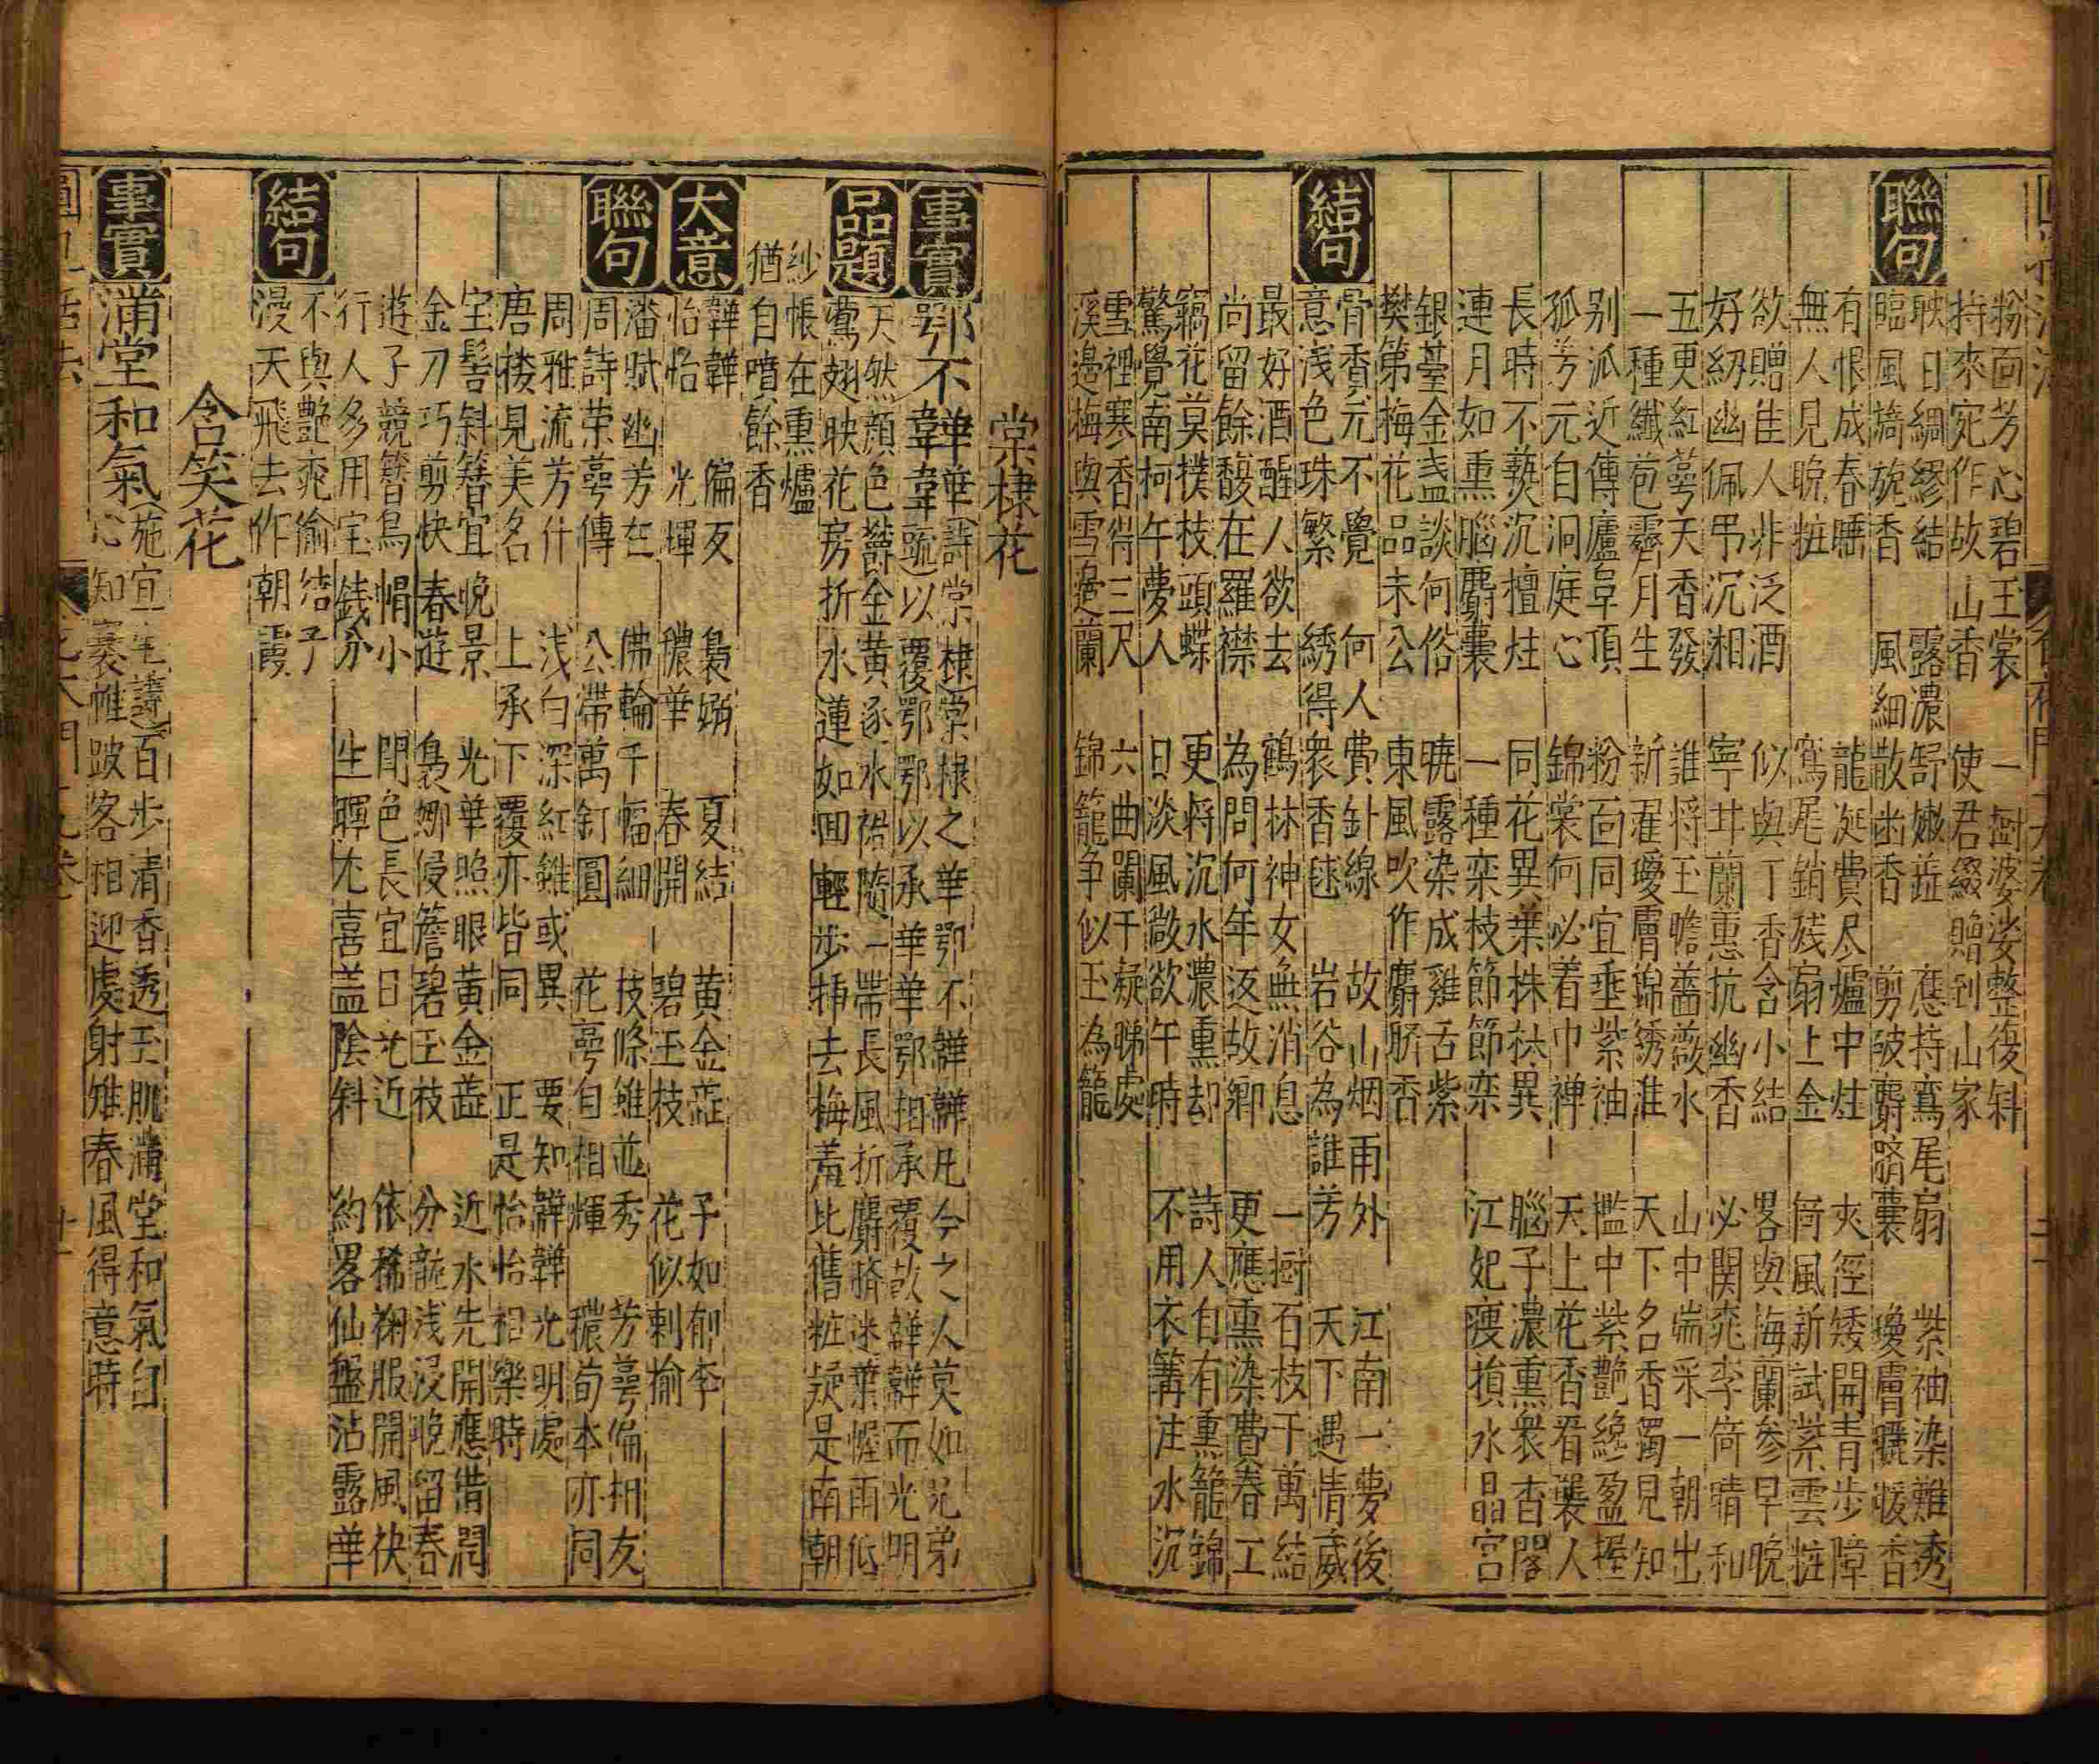 粉面芳心碧玉裳 一樹婆娑整復斜
持來宛作故山香 使君綴贈到山家
聯句
映日綢繆結 露濃舒嫩蕋 應持鸞尾扇 紫袖染難透
臨風旖旎香 風細散幽香 剪破麝臍囊 瓊膚曬暖香
有恨成春睡 龍涎費尽爐中炷 夾徑矮開青步障
無人見晚粧 鸞尾銷殘扇上金 倚風新試紫雲粧
欲贈佳人非泛酒 似與丁香含小結 畧與海蘭參早晚
好紉幽佩弔沉湘 寧甘蘭蕙抗幽香 必関桃李倚晴和
五更紅萼天香發 誰将玉瞻薔薇水 山中端采一朝出
一種纖苞霽月生 新濯瓊膚錦綉淮 天下名香獨見知
别派近傳廬阜頂 粉面同宜垂紫袖 檻中紫艷繞盈握
孤芳元自洞庭心 錦裳何必着巾禅 天上花香看襲人
長時不爇沉檀炷 同花異葉株株異 腦子濃熏衆杏閣
連月如熏腦麝囊 一種栾枝節節栾 江妃瘦損水晶宫
銀臺金盞談何俗 暁露染成雞舌紫
樊第梅花品未公 東風吹作麝臍香
結句
骨香元不覺 何人費針線 故山烟雨外 江南一夢後
意浅色珠繁 綉得衆香毬 岩谷為誰芳 天下遇情葳
最好酒醒人欲去 鶴林神女無消息 一樹石枝千萬結
尚留餘馥在羅襟 為問何年返故卿 更應熏染費春工
窮花莫撲枝頭蝶 更将沉水濃熏却 詩人自有熏籠錦
驚覺南柯午夢人 日淡風㣲欲午時 不用衣篝注水沉
雪裡寒香得三尺 六曲闌干疑睇處
溪邉梅與雪邉蘭 錦籠争似玉為籠
棠棣花
事實
鄂不韡韡 詩棠棣 棠棣之華鄂不韡韡凡今之人莫如兄弟
䟽以覆鄂鄂以承華華鄂相承覆故韡韡而光明
品題
天然顔色欝金黄 逐水裕隨一帶長 風折麝臍迷葉幄 雨低
鶯翅映花房 折水蓮如囬輕步 挿去梅羞比舊粧 疑是南朝
紗帳在熏爐
猶自噴餘香
大意
韡韡 偏友 裊娜 夏結 黄金蕋 子如郁李
怡怡 光輝 穠華 春開 碧玉枝 花似刺榆
聯句
潘賦幽芳在 佛輪千幅細 枝條雖並秀 芳萼偏相友
周詩荣萼傳 公帶萬釘圓 花萼自相輝 穠荀本亦同
周雅流芳什 浅白深紅雖或異 要知韡韡光明處
唐楼見美名 上承下覆亦皆同 正是怡怡相樂時
宝髻斜簪宜晚景 光華照眼黄金蕋 近水先開應借潤
金刀巧剪快春遊 裊娜侵簷碧玉枝 分龍浅浸晚留春
遊子競簪烏帽小 間色長宜日光近 依稀袍服開風袂
行人多用宝錢分 生暉尤喜盖陰斜 約畧仙盤沾露華
結句
不與艷桃偷结子
漫天飛去作朝霞
含笑花
事實
滿堂和氣 施宜生詩 百步清香透玉肌滿堂和氣自
心知褰帷跛客相迎處射雉春風得意時